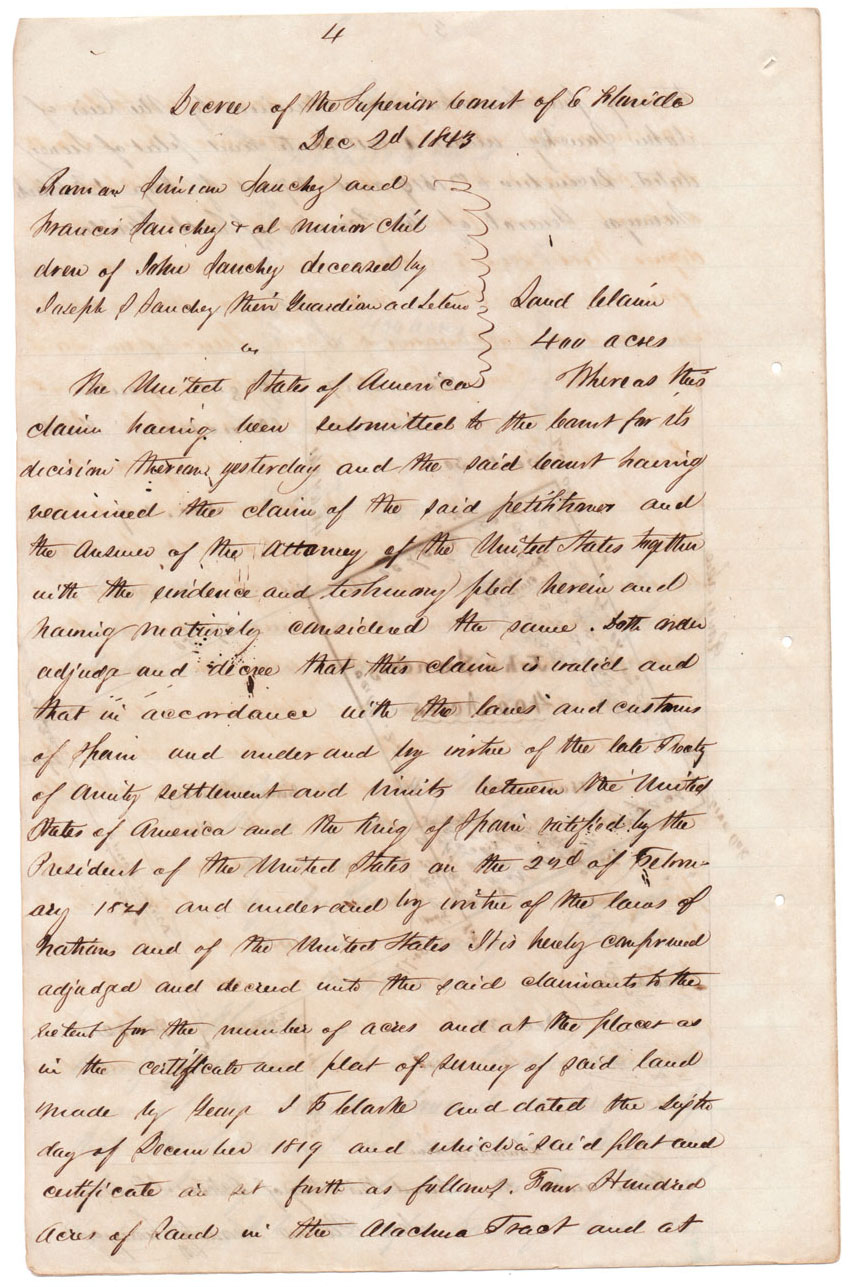 4
Decree of the Superior Court of E Florida
Dec 2d 1843
Roman Simeon Sanchez and
Francis Sanchez & al minor chil
dren of John Sanchez deceased by
Joseph S Sanchez their Guardian ad Letem
Land Claim
400 acres
vs
The United States of America Whereas this
claim having been submitted to the Court for its
decision thereon yesterday and the said Court having
examined the claim of the said petitioner and
the Answer of the Attorney of the United States together
with the evidence and testimony filed herein and
having maturely considered the same. Doth order
adjudge and decree that this claim is valid and
that in accordance with the laws and customs
of Spain and under and by virtue of the late Treaty
of Amity settlement and limits between the United
States of America and the King of Spain ratified by the
President of the United States on the 22d of Febru-
ary 1821 and under and by virtue of the laws of
Nations and of the United States It is hereby confirmed
adjudged and decreed unto the said claimants to the
extent for the number of acres and at the places as
in the certificate and plat of survey of said land
made by George J F Clarke and dated the sixth
day of December 1819 and which said plat and
certificate are set forth as follows. Four Hundred
Acres of Land in the Alachua Tract and at